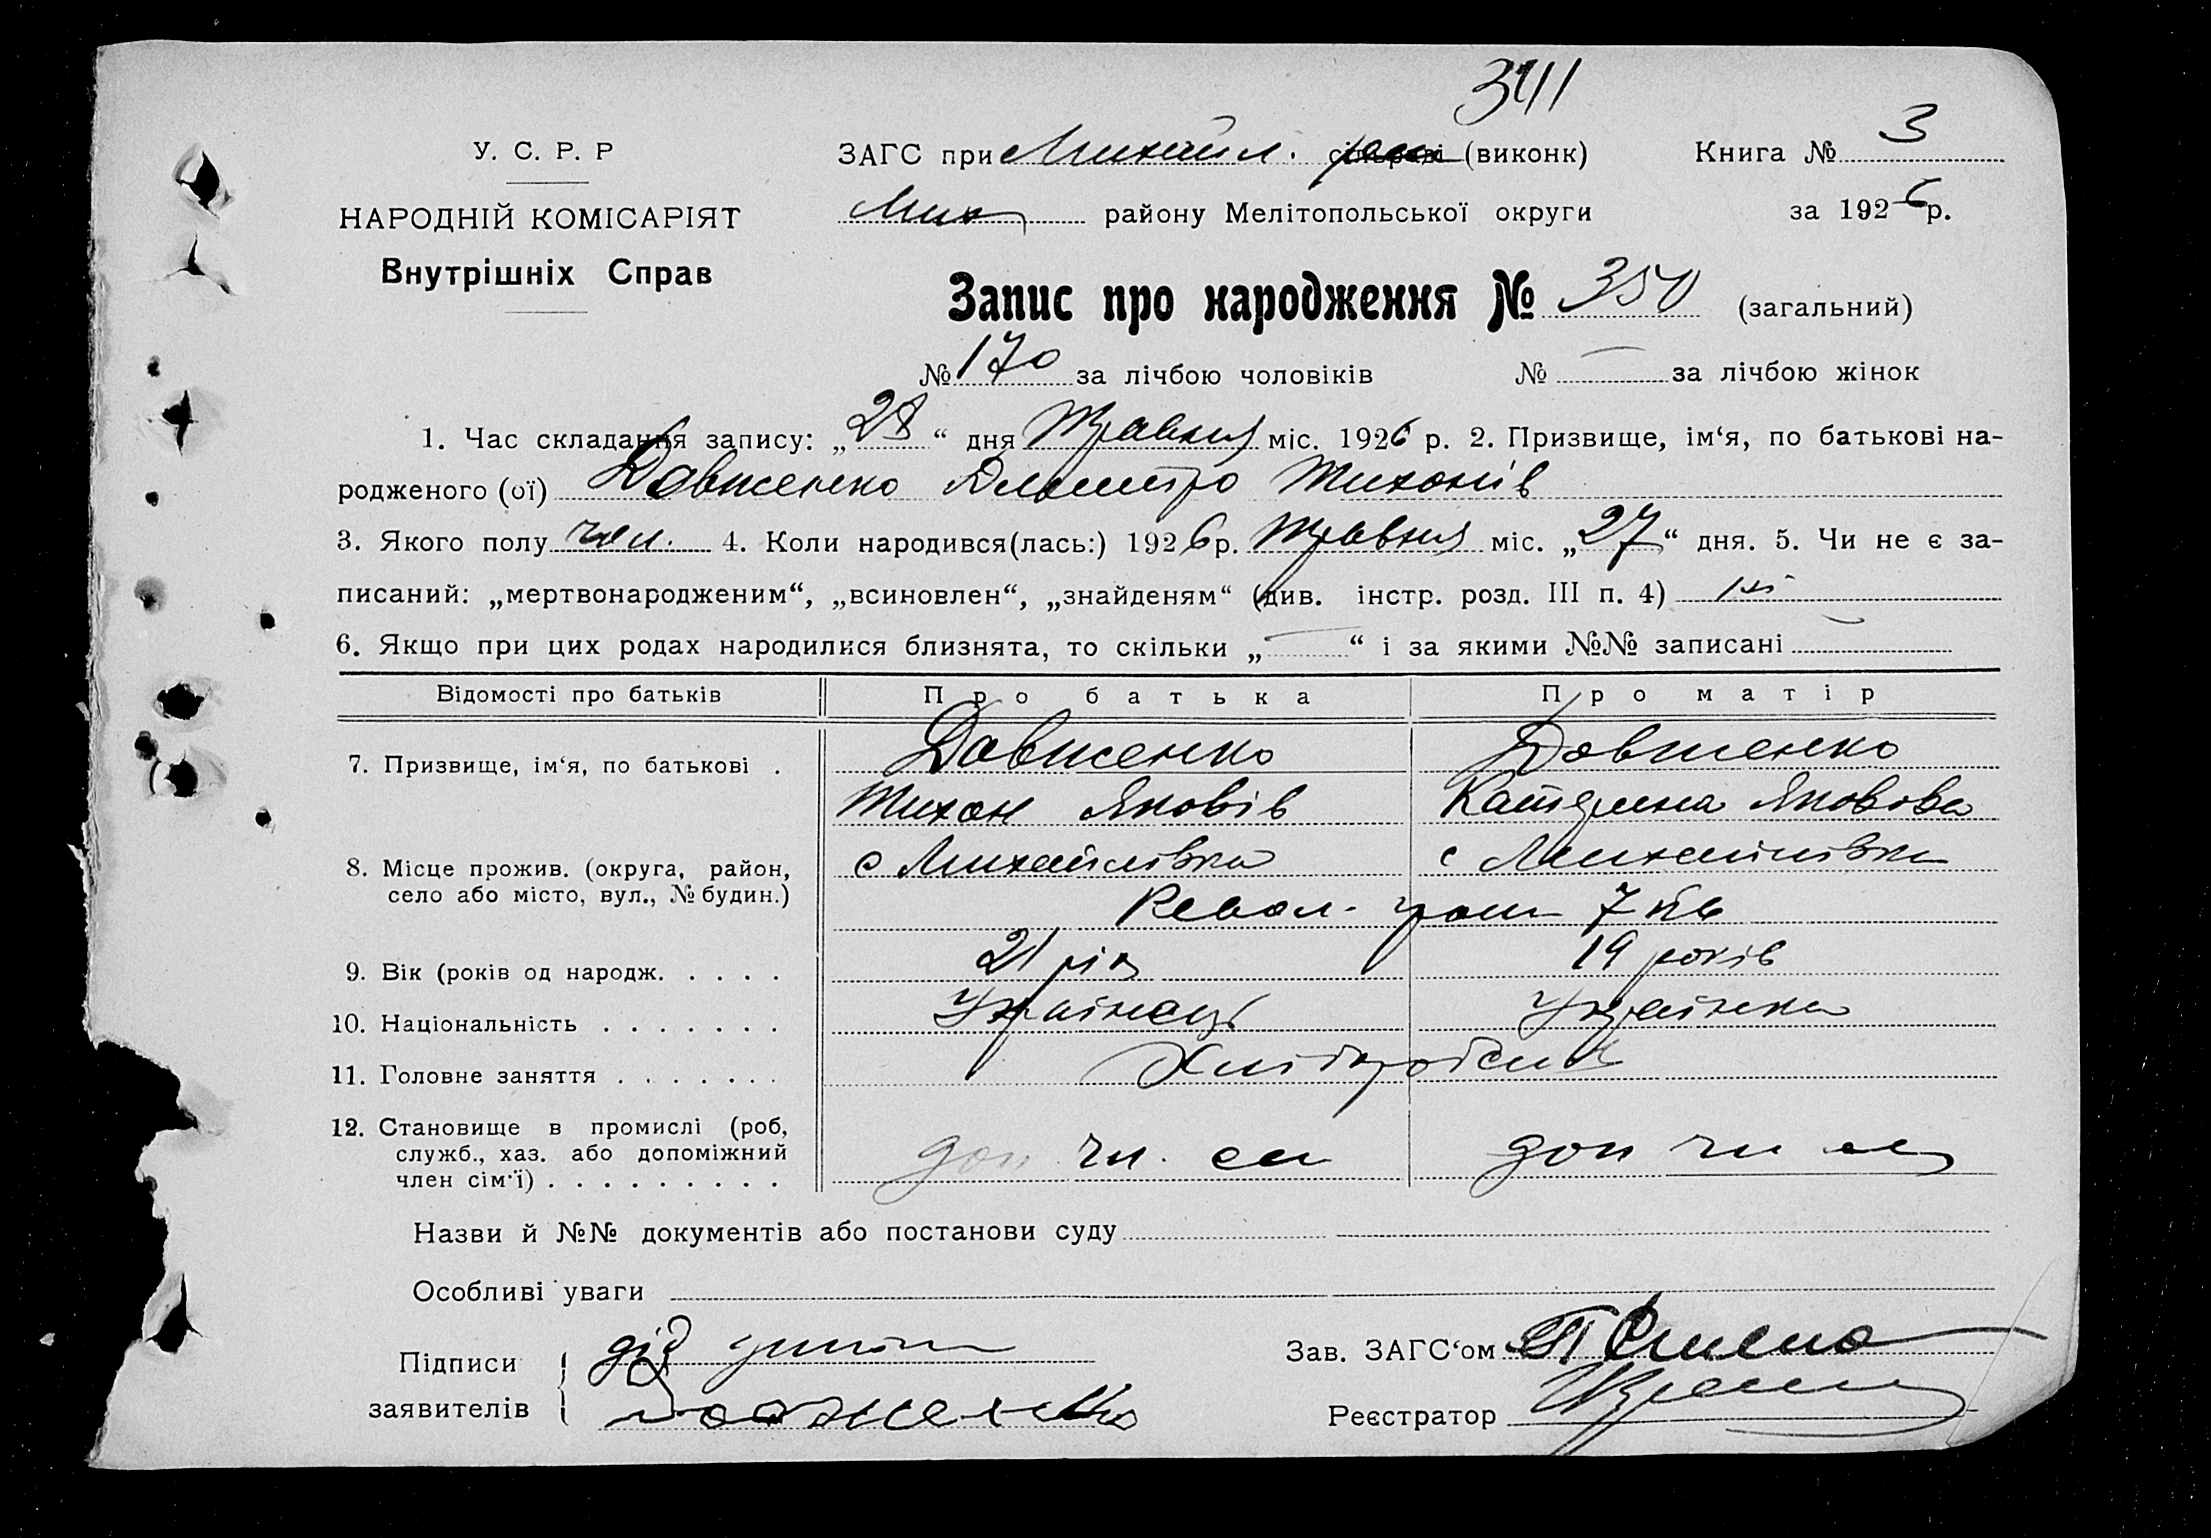 341
У. С. Р. Р
ЗАГС при Михайл. рай (виконк)
Книга № 3
НАРОДНІЙ КОМІСАРІЯТ
Мих району Мелітопольської округи
за 1926 р.
Внутрішніх Справ
Запис про народження № 350 (загальний)
№ 170 за лічбою чоловіків № — за лічбою жінок
1. Час складання запису: „28“ дня Травня міс. 1926 р. 2. Призвище, ім‘я, по батькові на-
родженого (ої) Довженко Дмитро Тихонів
3. Якого полу чол. 4. Коли народився(лась:) 1926 р. Травня міс. „27“ дня. 5. Чи не є за-
писаний: „мертвонародженим“, „всиновлен“, „знайденям“ (див. інстр. розд. III п. 4) ні
6. Якщо при цих родах народилися близнята, то скільки „—“ і за якими №№ записані —
Відомості про батьків Про батька Про матір
7. Призвище, ім‘я, по батькові . Довженко Довженко
Тихон Яковів Катерина Яковова
8. Місце прожив. (округа, район, с Михайлівка с Михайлівка
село або місто, вул., № будин.) Револ. 7 кв
9. Вік (років од народж. . . . . 21 рік 19 років
10. Національність . . . . . . . Українець Українка
11. Головне заняття . . . . . . . Хліборобство
12. Становище в промислі (роб,
служб., хаз. або допоміжний доп чл. см доп чл см
член сім‘ї) . . . . . . . . .
Назви й №№ документів або постанови суду
Особливі уваги
Підписи дід
Зав. ЗАГС‘ом
заявителів Довженко
Реєстратор